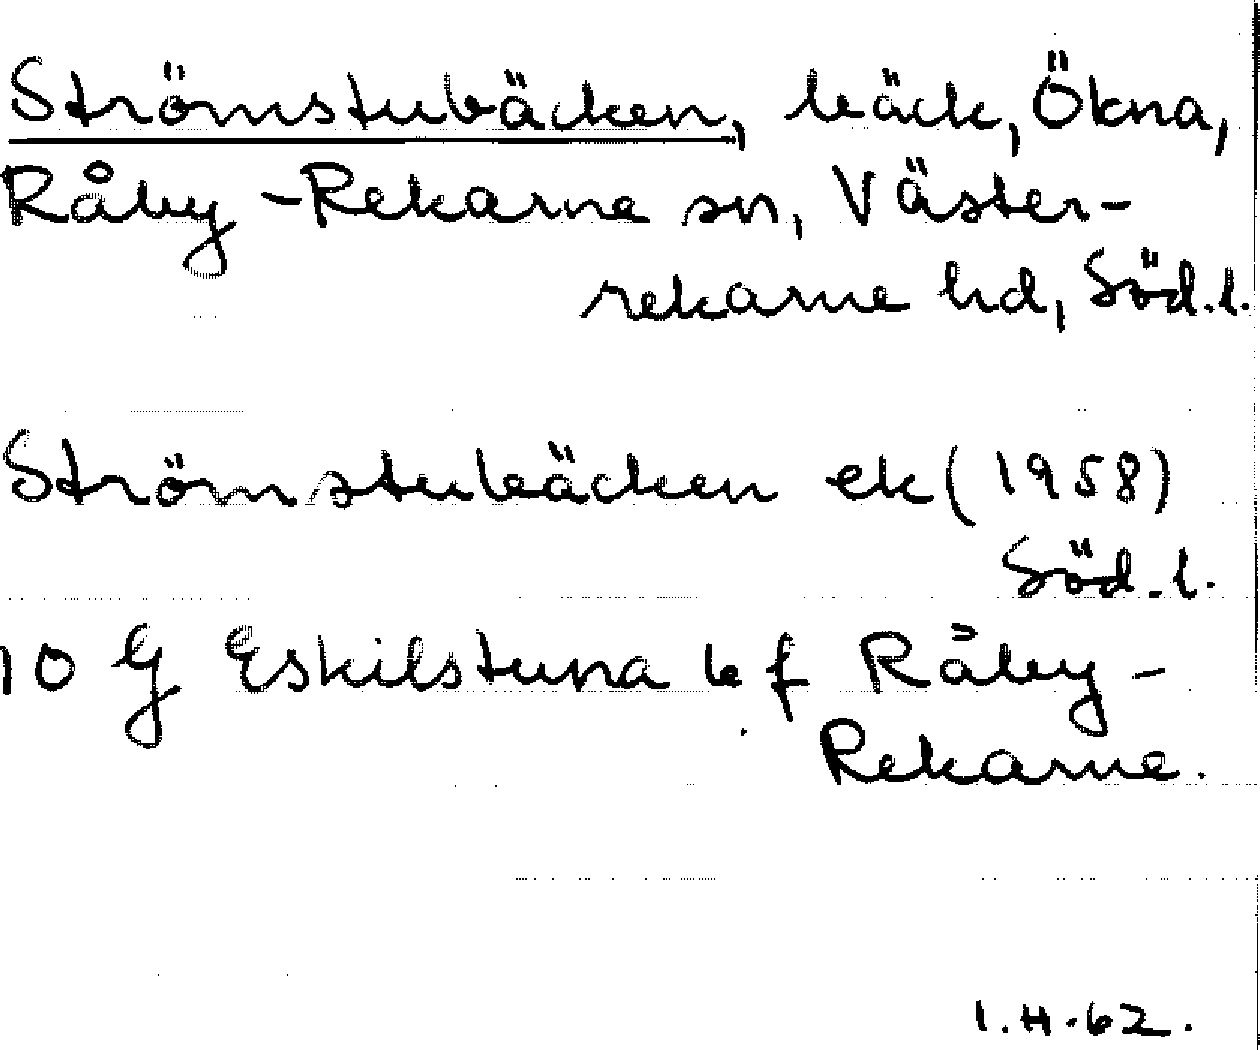 Strömstubäcken, bäck, Ökna,
Råby-Rekarne sn, Väster-
rekarne hd, Söd.l.
Strömstubäcken ek (1958)
Söd.l.
10 G Eskilstuna b f Råby-
Rekarne.
I.H.62.